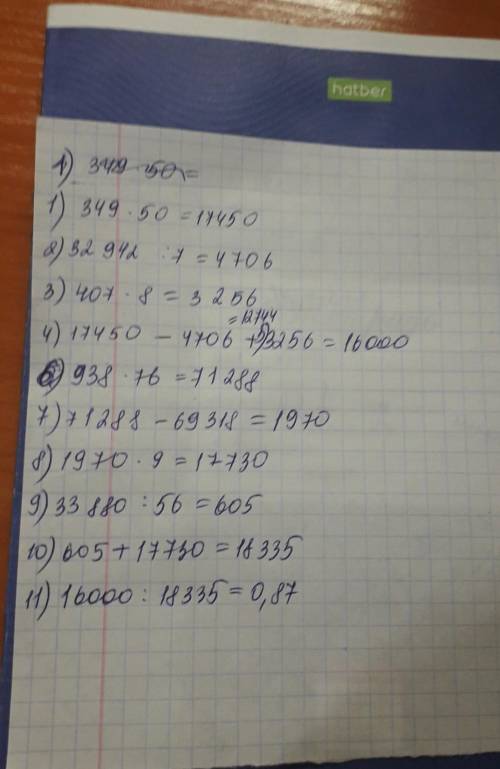 hatber
1) 349 50 =
1) 349 · 50 = 17450
2) 32 942 : 7 = 4706
3) 407 · 8 = 3 256
= 12744
4) 17450 - 4706 + 5) 3256 = 16000
6) 938 · 76 = 71 288
7) 71288 - 69318 = 1970
8) 1970 · 9 = 17730
9) 33 880 : 56 = 605
10) 605 + 17730 = 18335
11) 16000 : 18335 = 0,87